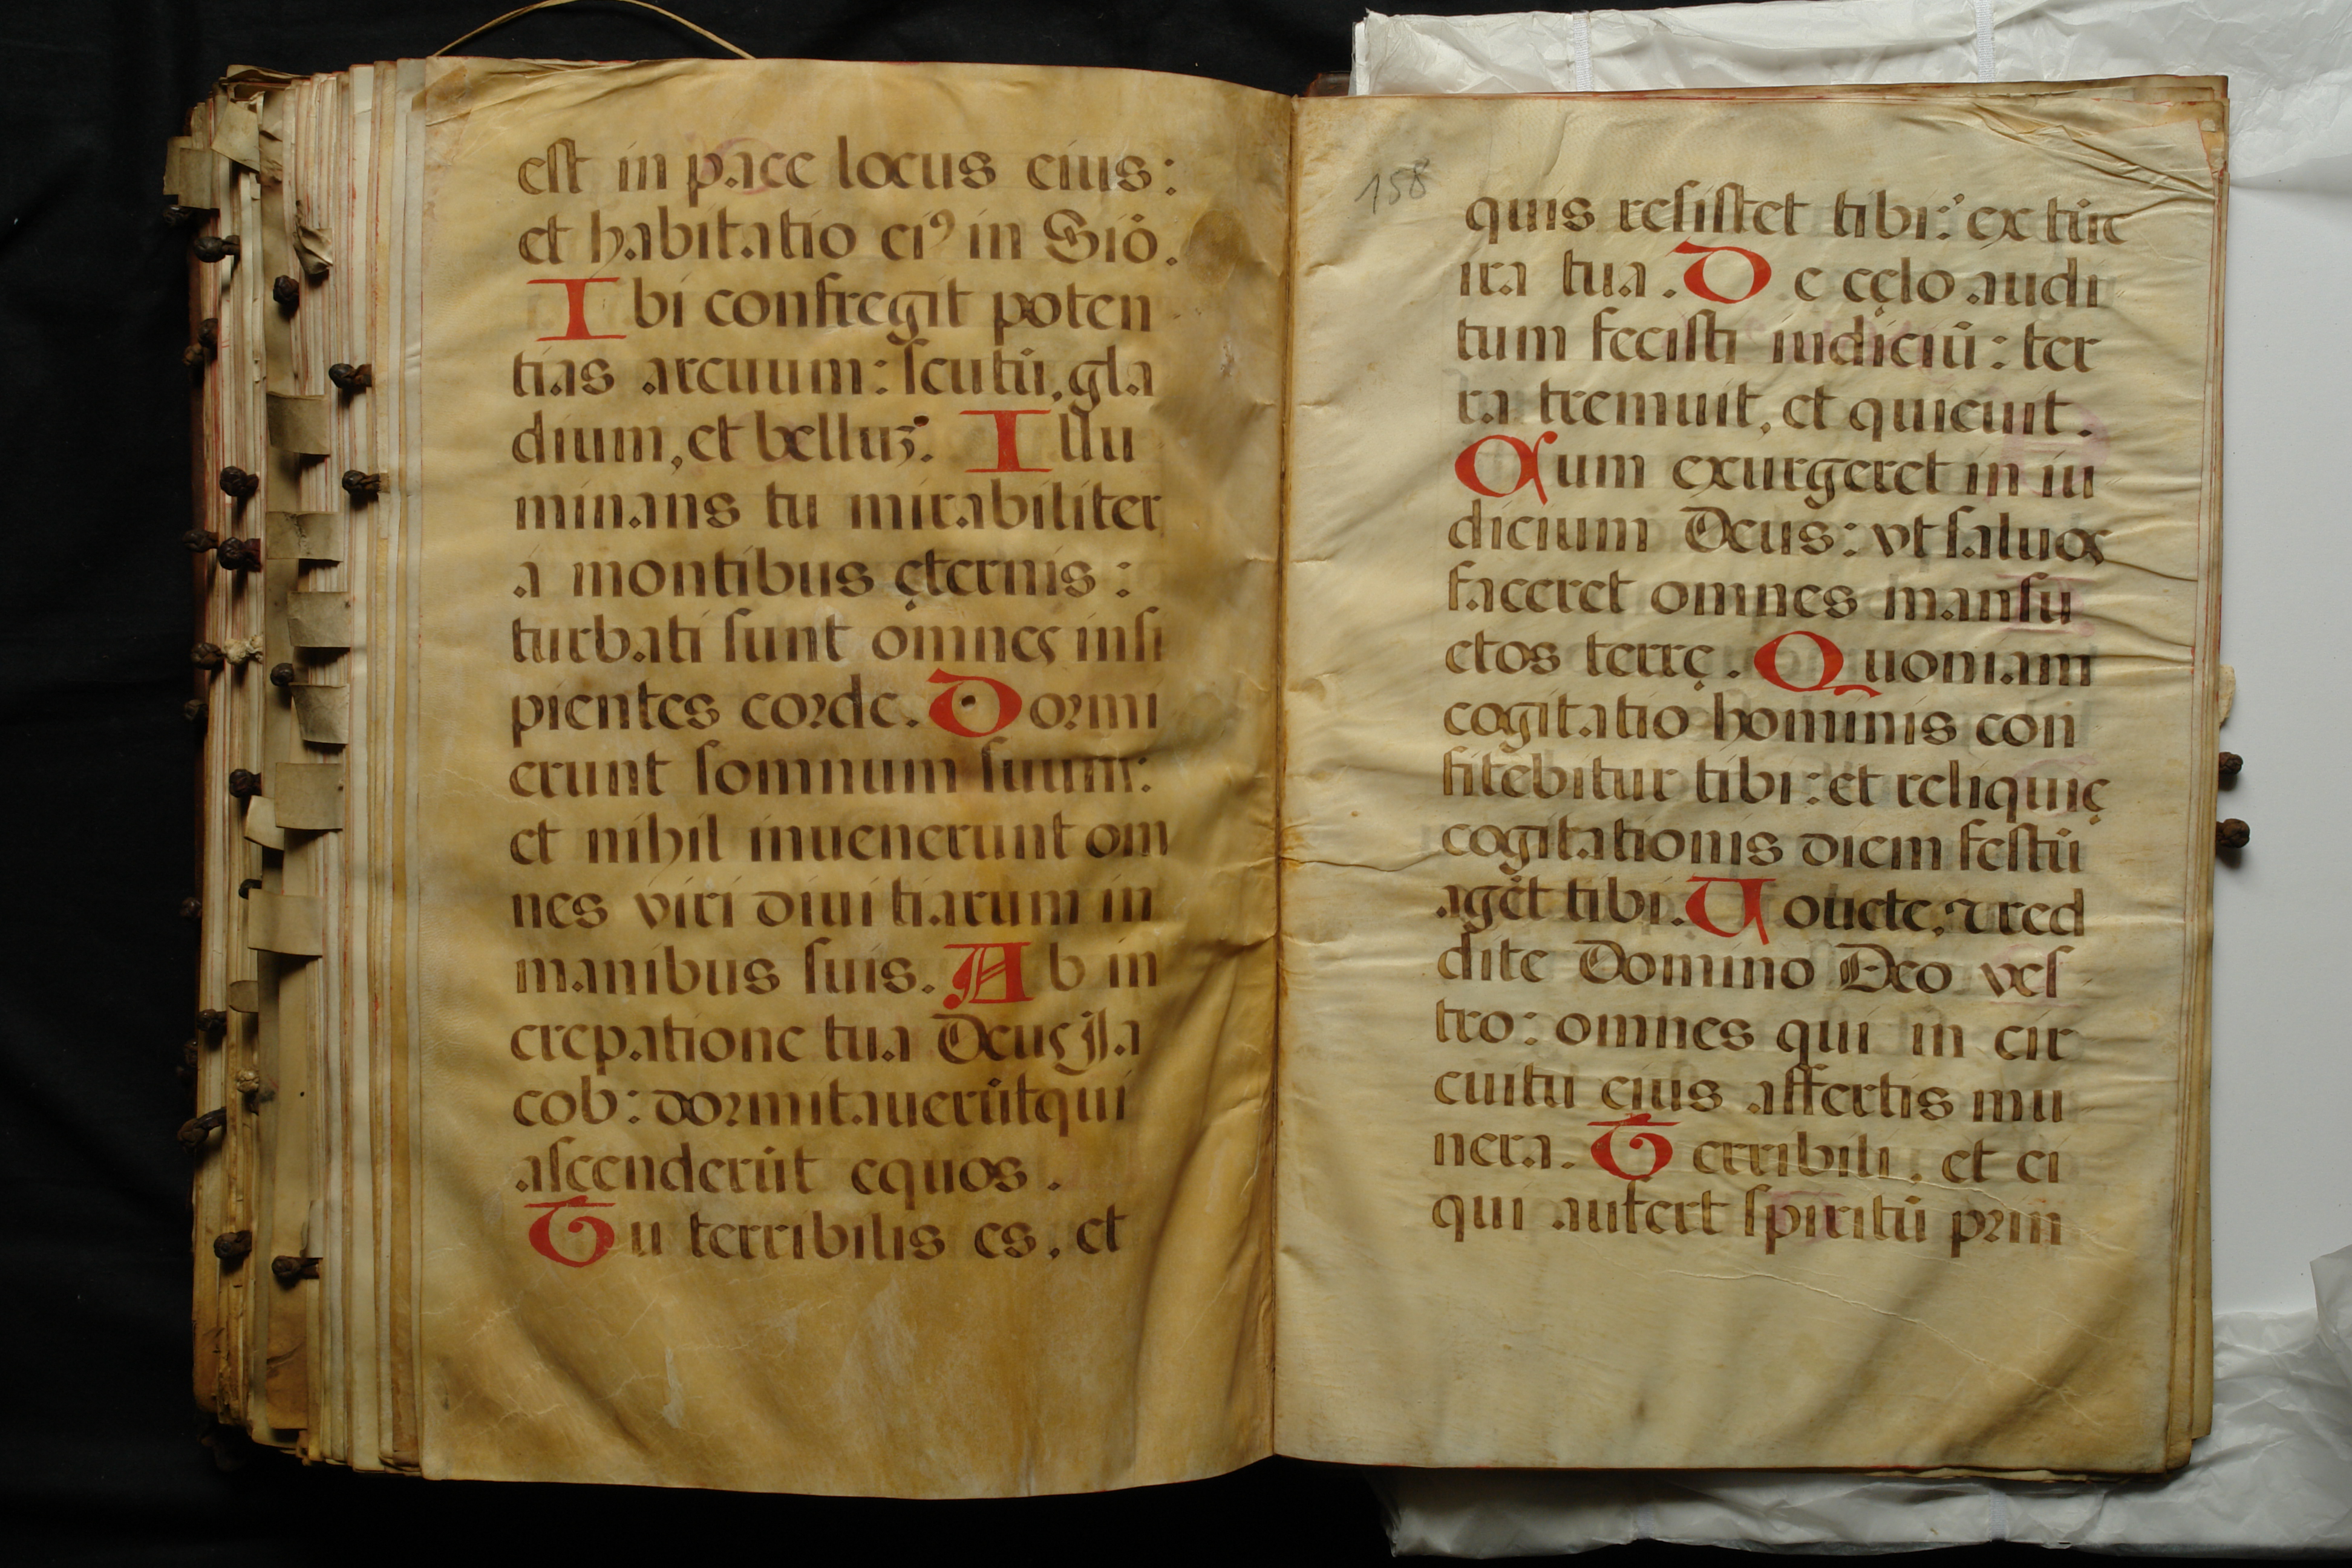 est in pace locus eius:
et habitatio ei⁹ in Siō.
Ibi confregit poten
tias arcuum: scutū, gla
dium, et belluꝫ. Illu
minans tu mirabiliter
a montibus ęternis:
turbati sunt omnes insi
pientes corde. Dormi
erunt somnum suum:
et nihil inuenerunt om
nes viri diuitiarum in
manibus suis. Ab in
crepatione tua Deus Ja
cob: dormitauerūt qui
ascenderūt equos.
Tu terribilis es, et
158
quis resistet tibi: ex tūc
ira tua. De cęlo audi
tum fecisti iudiciū: ter
ra tremuit, et quieuit.
Cum exurgeret in iu
dicium Deus: vt saluos
faceret omnes mansu
etos terrę. Quoniam
cogitatio hominis con
fitebitur tibi: et reliquię
cogitationis diem festū
agēt tibi. Uouete, ⁊ red
dite Domino Deo ves
tro: omnes qui in cir
cuitu eius affertis mu
nera. Terribili, et ei
qui aufert spiritū prin